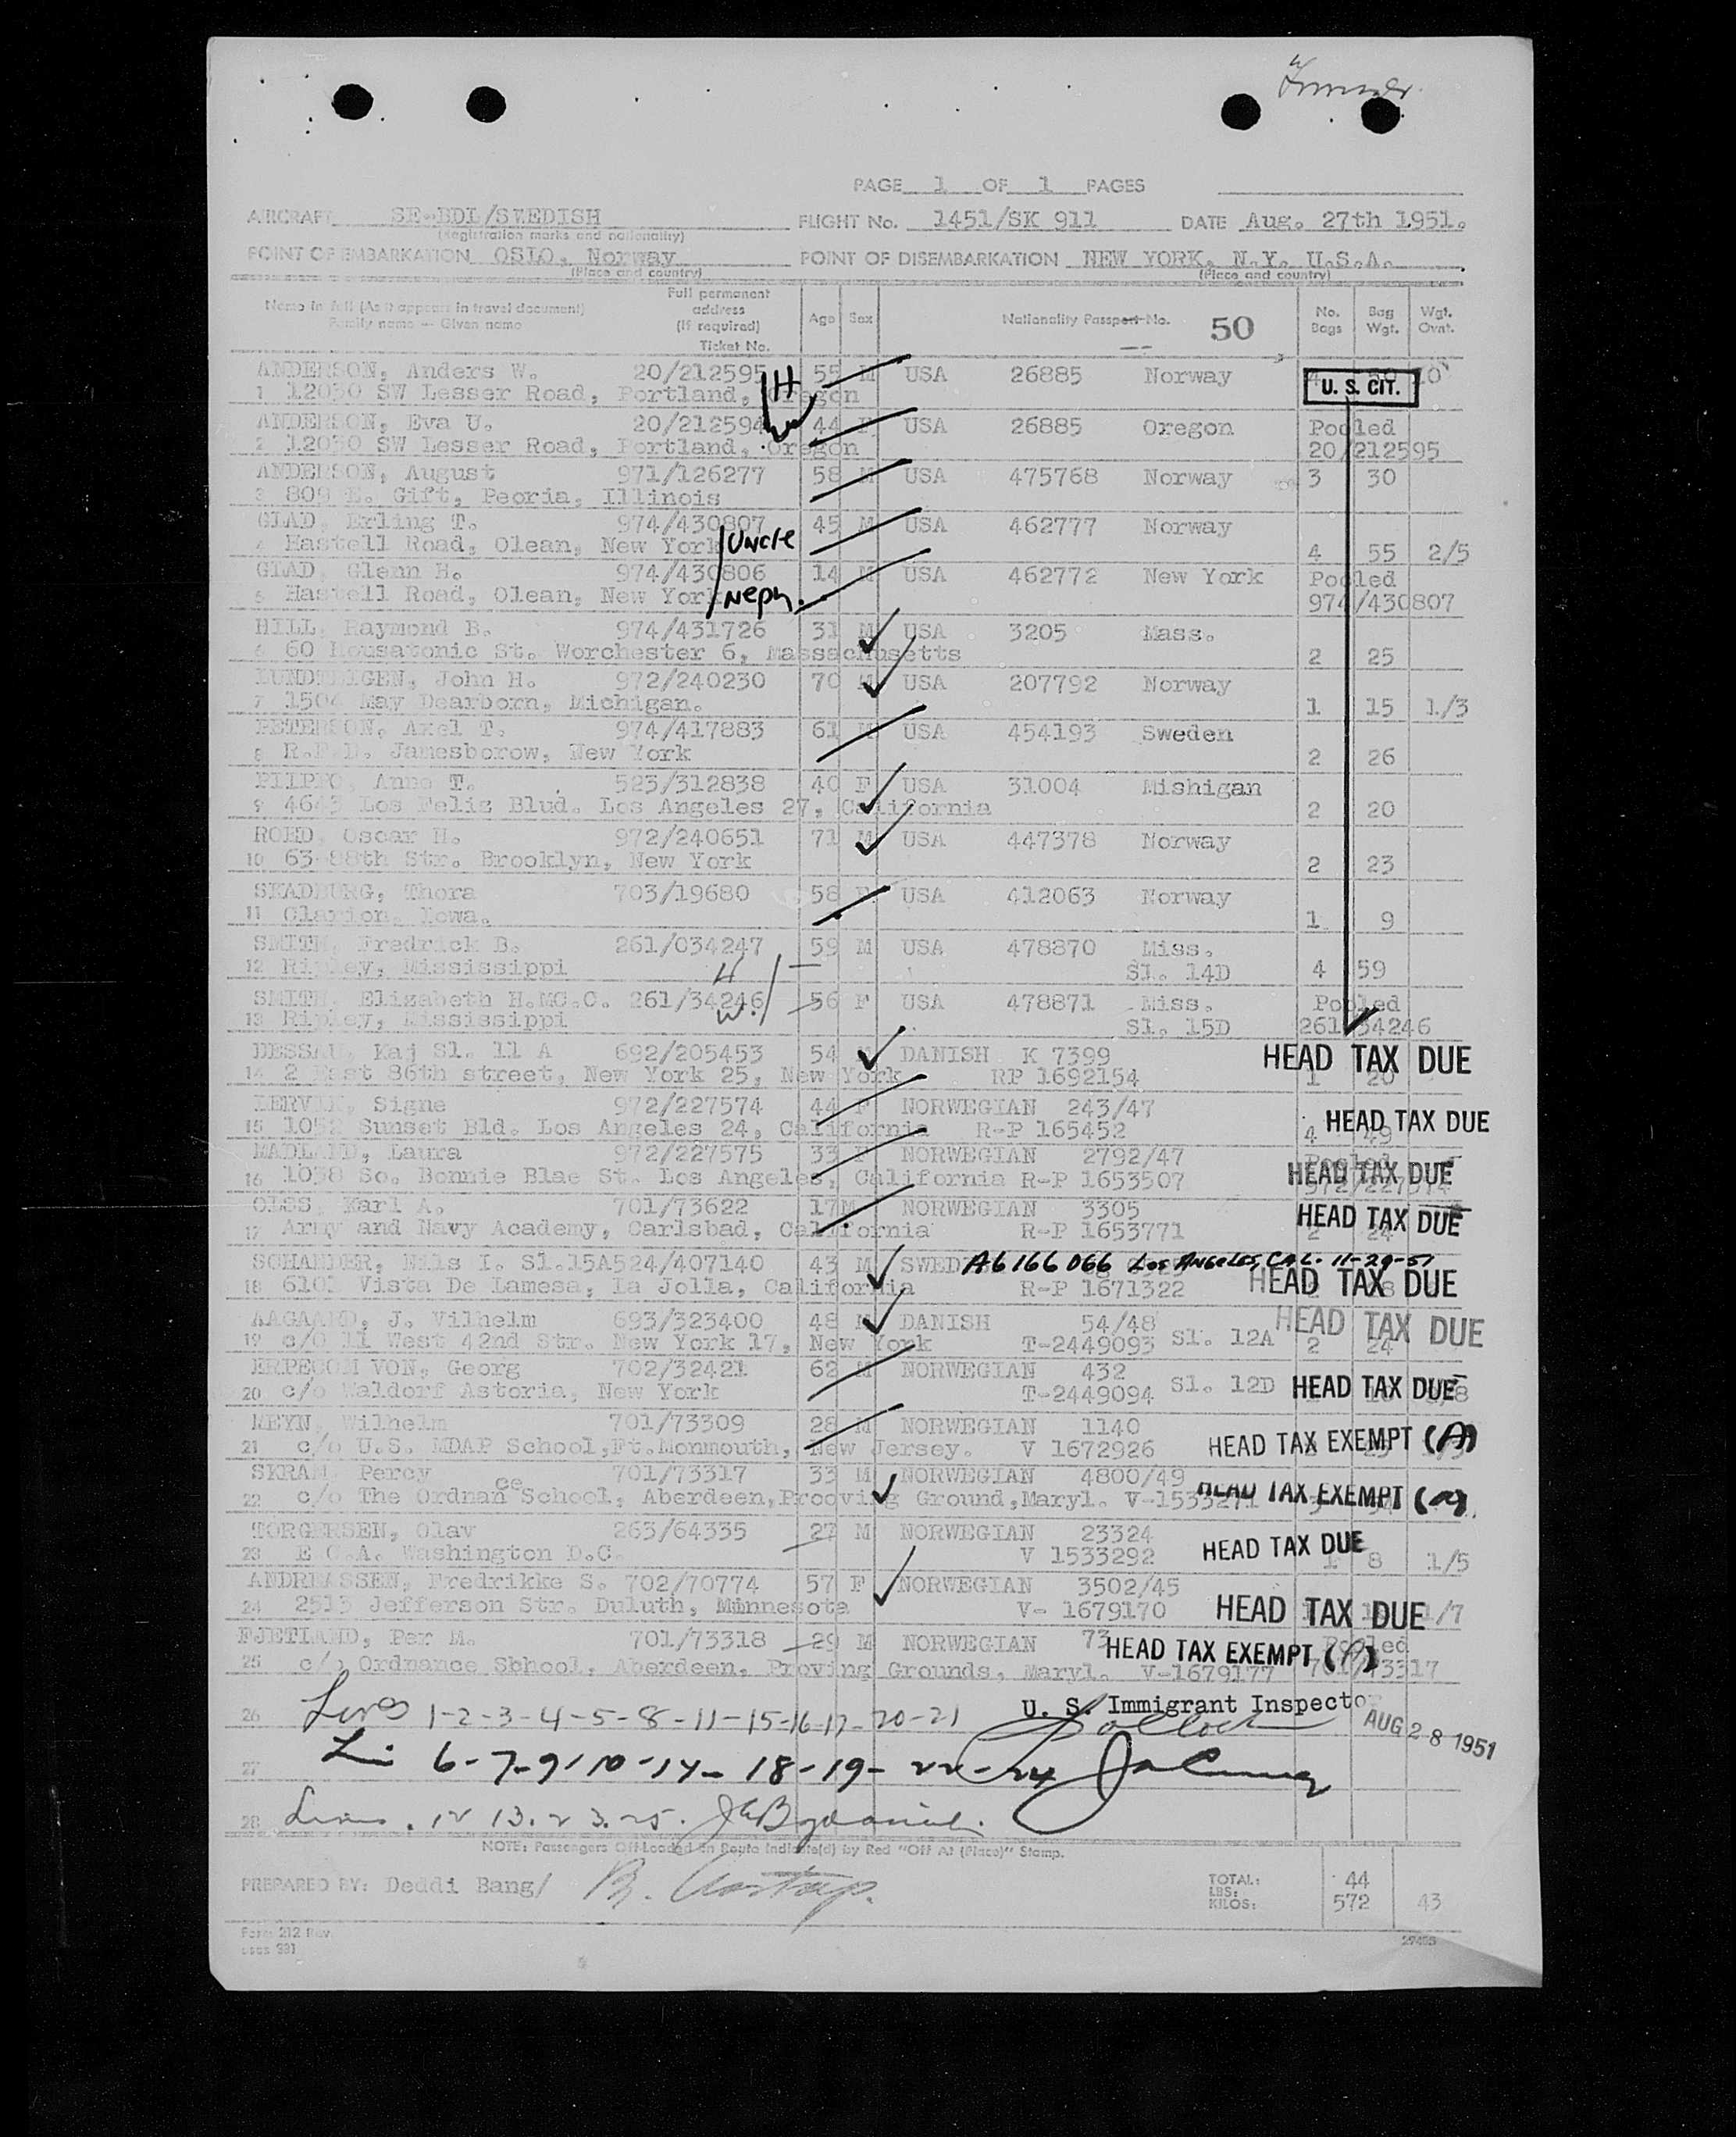 PAGE 1 OF 1 PAGES
AIRCRAFT SE-BDL/SWEDISH FLIGHT No. 1451/SK 911 DATE Aug. 27th 1951.
(Registration marks and nationality)
POINT OF EMBARKATION OSLO, Norway POINT OF DISEMBARKATION NEW YORK, N.Y. U.S.A.
(Place and country) (Place and country)
Name in full (As it appears in travel document) Family name — Given name Full permanent address (If required) Ticket No. Age Sex Nationality Passport No. 50 No. Bags Bag Wgt. Wgt. Ovnt.
ANDERSON, Anders W. 20/212595 H 55 M USA 26885 Norway
1 12030 SW Lesser Road, Portland, Oregon U. S. CIT.
ANDERSON, Eva U. 20/212594 W 44 F USA 26885 Oregon Pooled
2 12030 SW Lesser Road, Portland, Oregon 20/212595
ANDERSON, August 971/126277 58 M USA 475768 Norway 3 30
3 809 E. Gift, Peoria, Illinois
GLAD, Erling T. 974/430807 45 M USA 462777 Norway
4 Hastell Road, Olean, New York Uncle 4 55 2/5
GLAD, Glenn H. 974/430806 14 M USA 462772 New York Pooled
5 Hastell Road, Olean, New York Neph. 974/430807
HILL, Raymond B. 974/431726 31 M USA 3205 Mass.
6 60 Housatonic St. Worchester 6, Massachusetts 2 25
LUNDTEIGEN, John H. 972/240230 70 M USA 207792 Norway
7 1504 May Dearborn, Michigan. 1 15 1/3
PETERSON, Axel T. 974/417883 61 M USA 454193 Sweden
8 R.F.D. Jamesborow, New York 2 26
PIIPPO, Anne T. 523/312838 40 F USA 31004 Mishigan
9 4643 Los Feliz Blud. Los Angeles 27, California 2 20
ROED, Oscar H. 972/240651 71 M USA 447378 Norway
10 63-88th Str. Brooklyn, New York 2 23
SKADBURG, Thora 703/19680 58 F USA 412063 Norway
11 Clarion, Iowa. 1 9
SMITH, Fredrick B. 261/034247 59 M USA 478870 Miss.
12 Ripley, Mississippi H Sl. 14D 4 59
SMITH, Elizabeth H.MC.C. 261/34246 W. 56 F USA 478871 Miss. Pooled
13 Ripley, Mississippi Sl. 15D 261/34246
DESSAU, Kaj Sl. 11 A 692/205453 54 M DANISH K 7399 HEAD TAX DUE
14 2 East 86th street, New York 25, New York RP 1692154 1 20
LERVIK, Signe 972/227574 44 F NORWEGIAN 243/47 HEAD TAX DUE
15 1052 Sunset Bld. Los Angeles 24, California R-P 165452 4 49
MADLAND, Laura 972/227575 33 F NORWEGIAN 2792/47 Pooled
16 1038 So. Bonnie Blae St. Los Angeles, California R-P 1653507 HEAD TAX DUE
OLSS, Karl A. 701/73622 17 M NORWEGIAN 3305 HEAD TAX DUE
17 Army and Navy Academy, Carlsbad, California R-P 1653771 2 24
SCHANDER, Nils I. Sl.15A 524/407140 43 M SWED A6 166 066 Los Angeles, Cal. 11-29-51
18 6101 Vista De Lamesa, La Jolla, California R-P 1671322 HEAD TAX DUE
AAGAARD, J. Vilhelm 693/323400 48 M DANISH 54/48 HEAD TAX DUE
19 c/o 11 West 42nd Str. New York 17, New York T-2449093 Sl. 12A 2 24
ERPECOM VON, Georg 702/32421 62 M NORWEGIAN 432
20 c/o Waldorf Astoria, New York T-2449094 Sl. 12D HEAD TAX DUE
MEYN, Wilhelm 701/73309 28 M NORWEGIAN 1140
21 c/o U.S. MDAP School,Ft.Monmouth, New Jersey. V 1672926 HEAD TAX EXEMPT (A)
SKRAM, Percy 701/73317 33 M NORWEGIAN 4800/49
22 c/o The Ordnance School, Aberdeen,Prooving Ground,Maryl. V-1533271 HEAD TAX EXEMPT (A)
TORGERSEN, Olav 263/64335 27 M NORWEGIAN 23324
23 E C.A. Washington D.C. V 1533292 HEAD TAX DUE 1 8 1/5
ANDREASSEN, Fredrikke S. 702/70774 57 F NORWEGIAN 3502/45
24 2513 Jefferson Str. Duluth, Minnesota V- 1679170 HEAD TAX DUE 1/7
FJETLAND, Per M. 701/73318 29 M NORWEGIAN 73 HEAD TAX EXEMPT (A) Pooled
25 c/o Ordnance Sbhool, Aberdeen, Proving Grounds, Maryl. V-1679177 701/73317
26 Lines 1-2-3-4-5-8-11-15-16-17-20-21 U. S. Immigrant Inspector AUG 28 1951
27 Li 6-7-9-10-14-18-19-22-24
28 Lines. 12 13. 23. 25.
NOTE: Passengers Off-Loaded En Route Indicate(d) by Red "Off At (Place)" Stamp.
PREPARED BY: Deddi Bang/ TOTAL: 44
LBS:
KILOS: 572 43
Form 212 Rev.